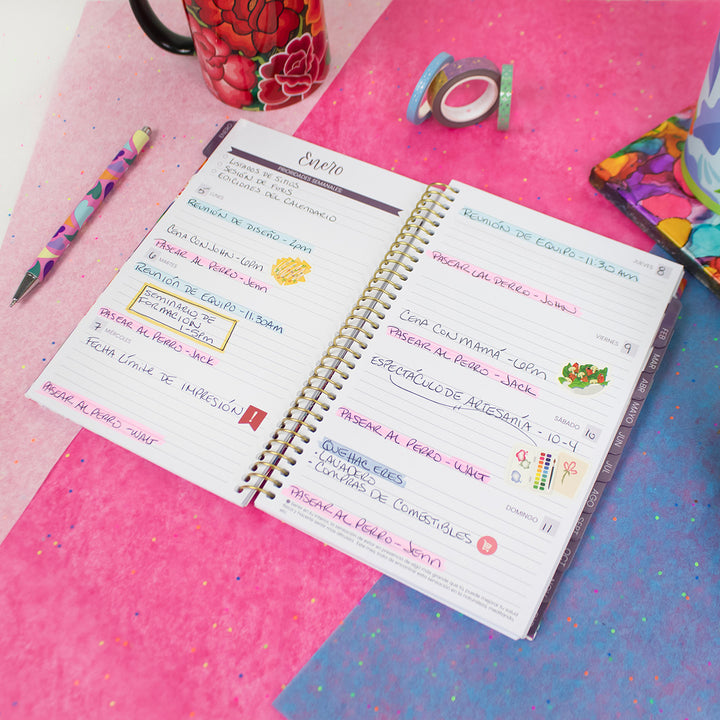 ENERO
Enero
PRIORIDADES SEMANALES
LISTADOS DE SITIOS
SESIÓN DE FOTOS
EDICIONES DEL CALENDARIO
5 LUNES
REUNIÓN DE DISEÑO - 2pm
CENA CON JOHN - 6pm
PASEAR AL PERRO - JENN
6 MARTES
REUNIÓN DE EQUIPO - 11:30AM
SEMINARIO DE
FORMACIÓN
1-5pm
PASEAR AL PERRO - JACK
7 MIÉRCOLES
FECHA LÍMITE DE IMPRESIÓN
PASEAR AL PERRO - WALT
JUEVES 8
REUNIÓN DE EQUIPO - 11:30AM
PASEAR AL PERRO - JOHN
VIERNES 9
CENA CON MAMÁ - 6pm
PASEAR AL PERRO - JACK
SÁBADO 10
ESPECTÁCULO DE ARTESANÍA - 10-4
PASEAR AL PERRO - WALT
DOMINGO 11
QUEHACERES
• LAVADERO
• COMPRAS DE COMESTIBLES
PASEAR AL PERRO - JENN
FEB
MAR
ABR
MAYO
JUN
JUL
AGO
SEPT
OCT